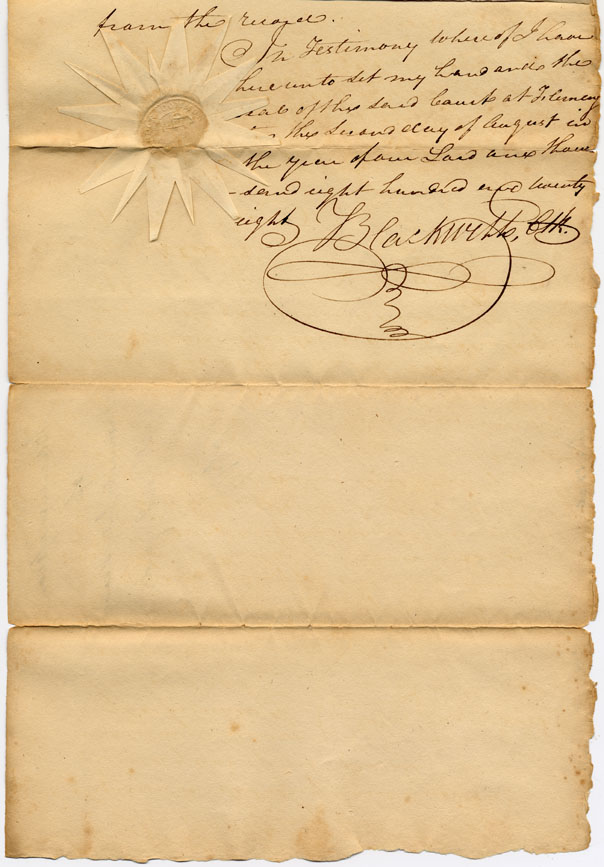 from the record.
In Testimony whereof I have
hereunto set my hand and the
seal of the said Court at Fleming
this second day of August in
the year of our Lord one thou
-sand eight hundred and twenty
eight